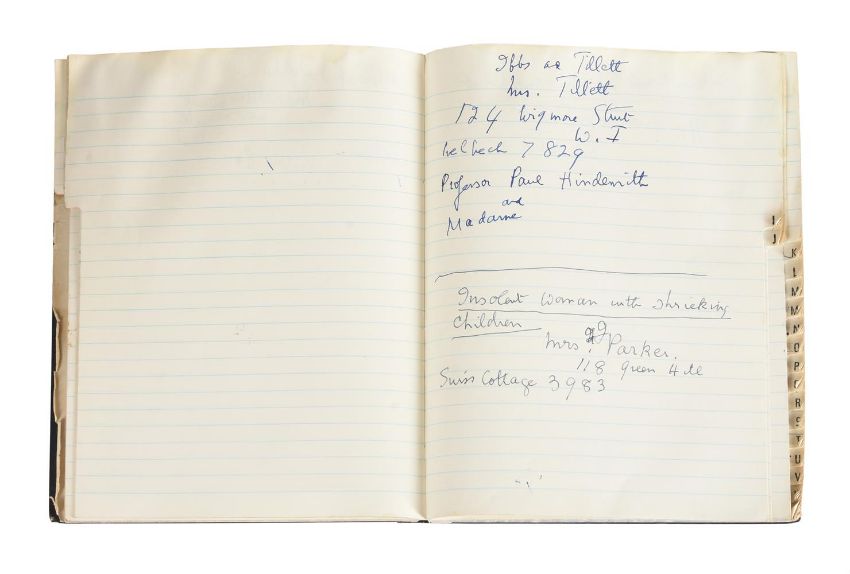 Ibbs and Tillett
Mrs. Tillett
124 Wigmore Street
W. I
Welbeck 7829
Professor Paul Hindemith
and
Madame
Insolent Woman with shrieking
children
Mrs Parker.
118 Green Hill
Swiss Cottage 3983
I
J
K
L
M
M
N
O
P
R
S
T
U
V